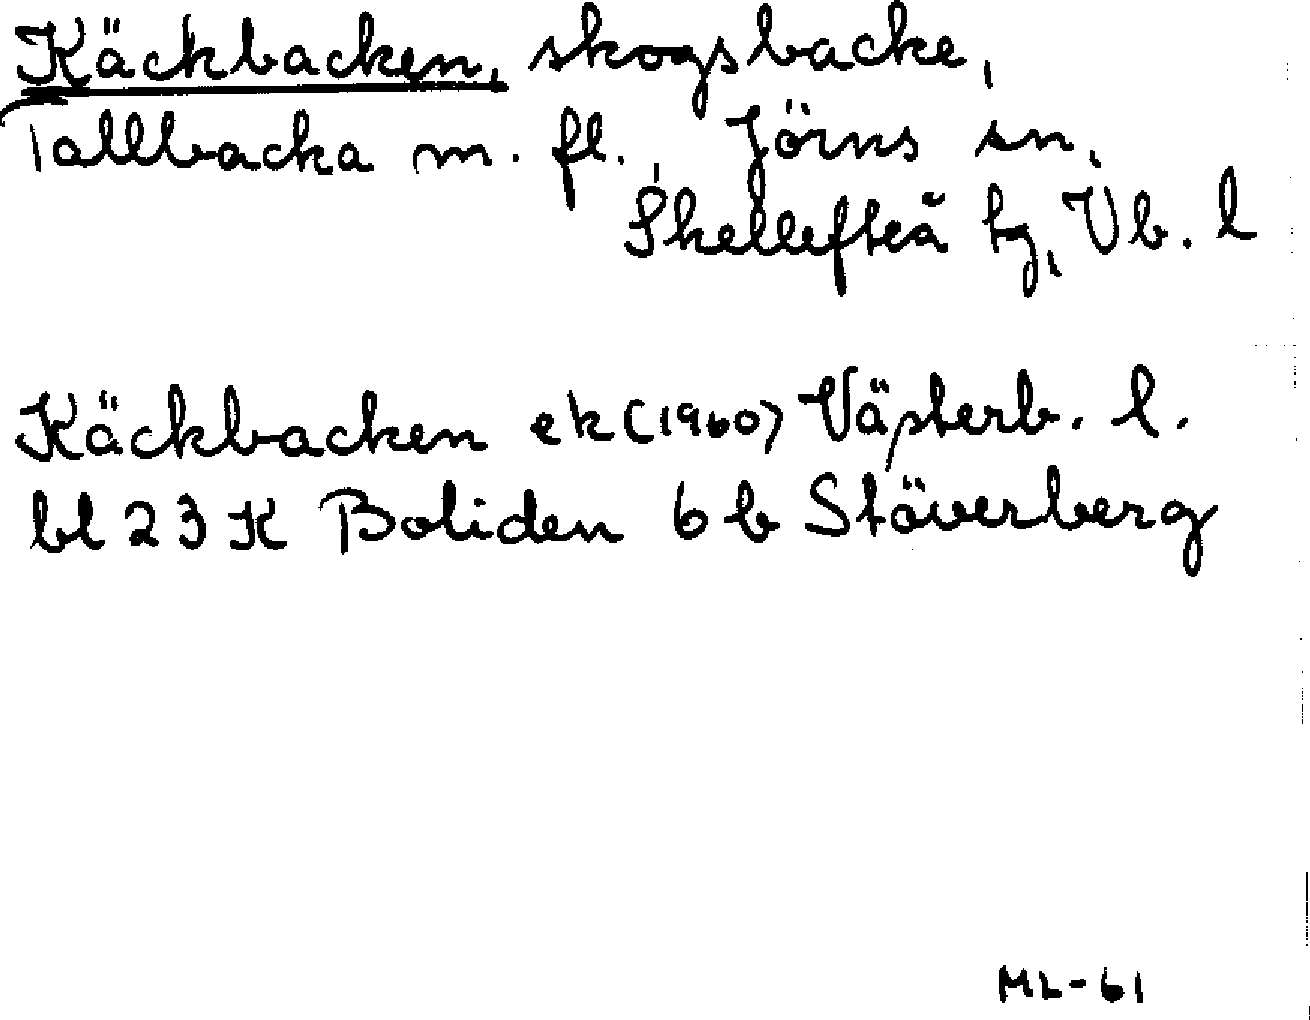 Käckbacken, skogsbacke,
Tallbacka m. fl., Jörns sn,
Skellefteå tg, Vb. l
Käckbacken ek (1960) Västerb. l.
bl 23 K Boliden 6 b Stöverberg
ML-61